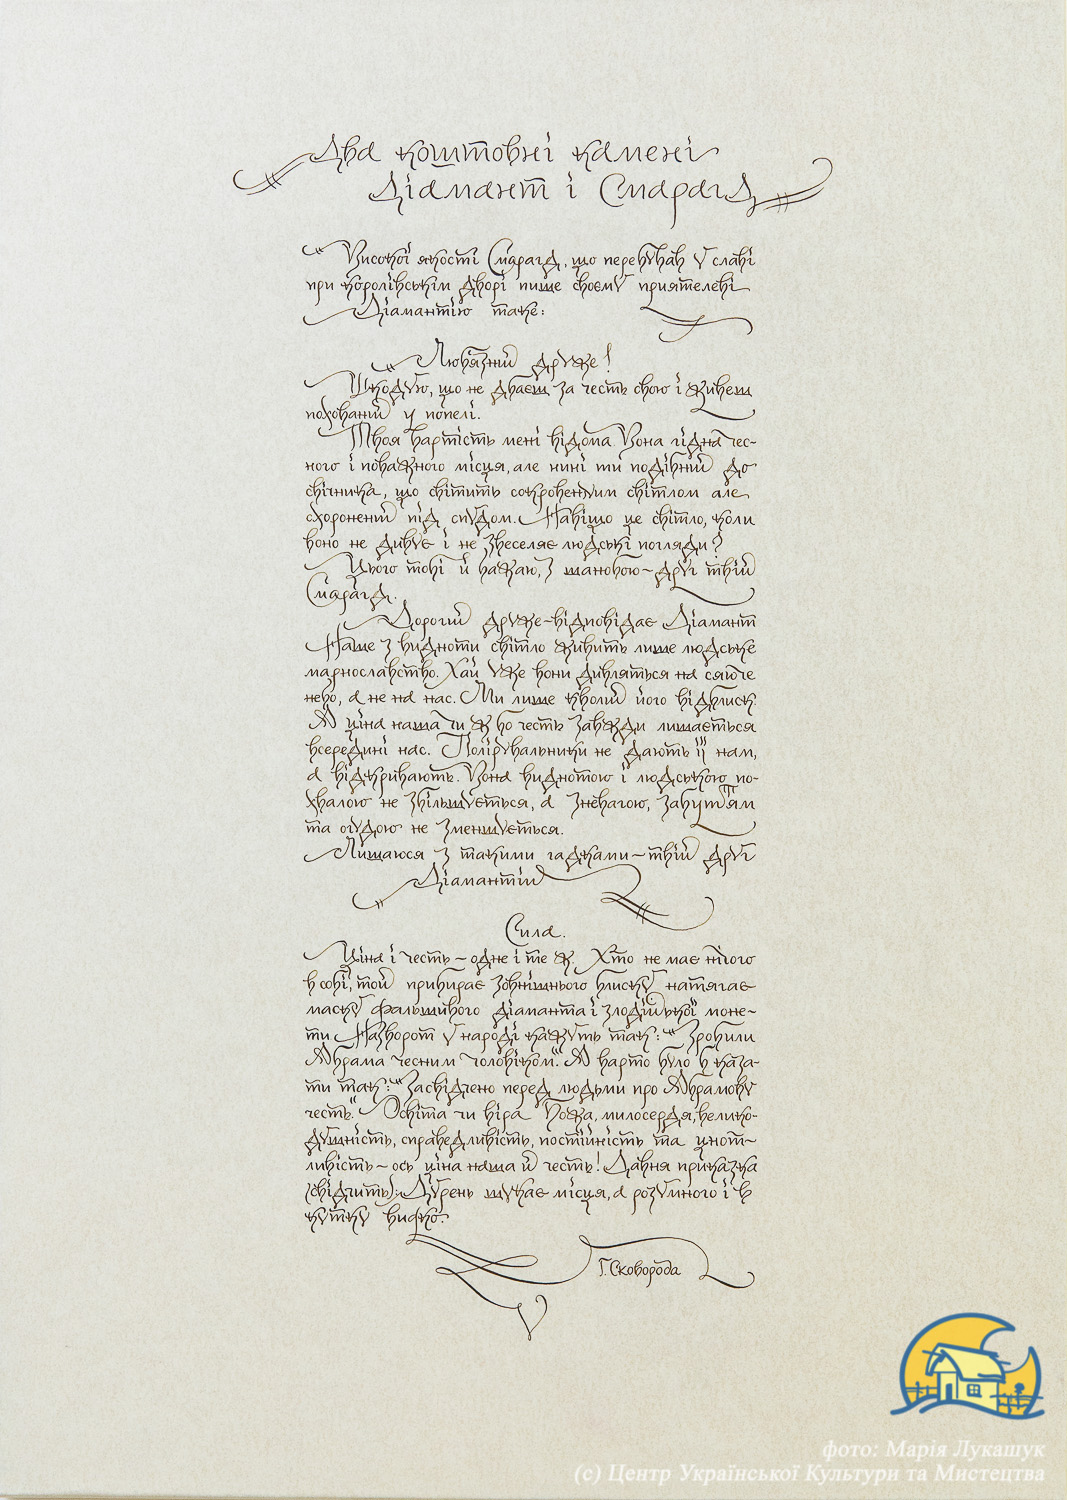 Два коштовні камені
Діамант і Смарагд
Високої якості Смарагд, що перебував у славі
при королівськім дворі пише своєму приятелеві
Діамантію таке:
Люб'язний друже!
Шкодую, що не дбаєш за честь свою і живеш
похований у попелі.
Твоя вартість мені відома. Вона гідна чес-
ного і поважного місця, але нині ти подібний до
свічника, що світить сокровенним світлом але
схоронений під спудом. Навіщо це світло, коли
воно не дивує і не звеселяє людські погляди?
Цього тобі й бажаю, з шановою~друг твій
Смарагд.
Дорогий друже~відповідає Діамант
Наше з видноти світло живить лише людське
марнославство. Хай уже вони дивляться на сяюче
небо, а не на нас. Ми лише кволий його відблиск.
А ціна наша чи ж бо честь завжди лишається
всередині нас. Полірувальники не дають її нам,
а відкривають. Вона виднотою і людською по-
хвалою не збільшується, а зневагою, забуттям
та огудою не зменшується.
Лишаюся з такими гадками~твій друг
Діамантій
Сила.
Ціна і честь~одне і те ж. Хто не має нічого
в собі, той прибирає зовнішнього блиску, натягає
маску фальшивого діаманта і злодійської моне-
ти. Навзворот у народі кажуть так: "Зробили
Абрама чесним чоловіком". А варто було б каза-
ти так: "Засвідчено перед людьми про Абрамову
честь". Освіта чи віра Божа, милосердя, велико-
душність, справедливість, постійність та цнот-
ливість~ось ціна наша й честь! Давня приказка
свідчить: Дурень шукає місця, а розумного і в
кутку видко.
Г. Сковорода
фото: Марія Лукашук
(с) Центр Української Культури та Мистецтва